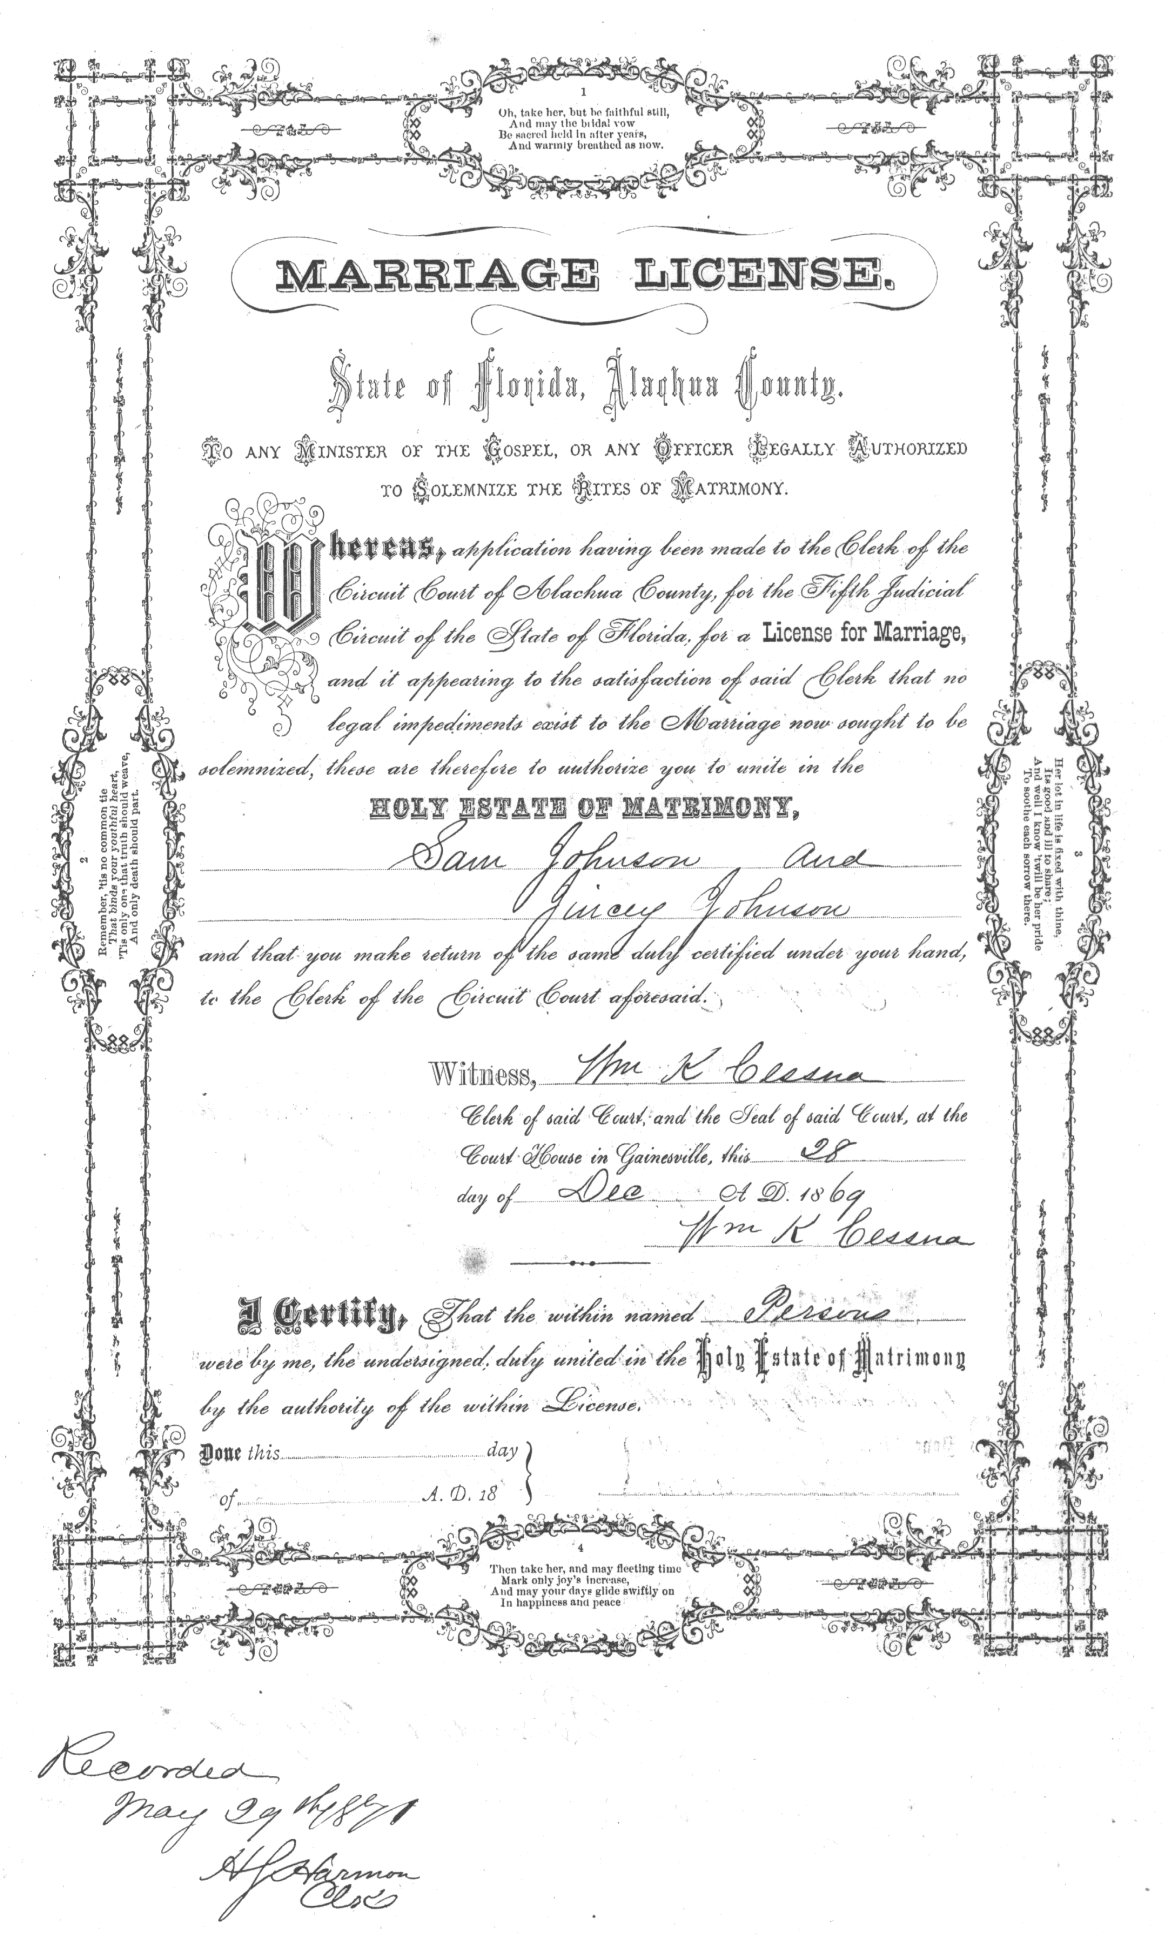 1
Oh, take her, but be faithful still,
And may the bridal vow
Be sacred held in after years,
And warmly breathed as now.
MARRIAGE LICENSE.
State of Florida, Alachua County.
TO ANY MINISTER OF THE GOSPEL, OR ANY OFFICER LEGALLY AUTHORIZED
TO SOLEMNIZE THE RITES OF MATRIMONY.
Whereas, application having been made to the Clerk of the
Circuit Court of Alachua County, for the Fifth Judicial
Circuit of the State of Florida, for a License for Marriage,
and it appearing to the satisfaction of said Clerk that no
legal impediments exist to the Marriage now sought to be
solemnized, these are therefore to authorize you to unite in the
HOLY ESTATE OF MATRIMONY,
Sam Johnson and
Jincey Johnson
and that you make return of the same duly certified under your hand,
to the Clerk of the Circuit Court aforesaid.
Witness, Wm K Cessna
Clerk of said Court, and the Seal of said Court, at the
Court House in Gainesville, this 28
day of Dec A. D. 1869
Wm K Cessna
I Certify, That the within named Persons
were by me, the undersigned, duly united in the Holy Estate of Matrimony
by the authority of the within License.
Done this day
of A. D. 18
2
Remember, 'tis no common tie
That binds your youthful heart,
'Tis only one that truth should weave,
And only death should part.
3
Her lot in life is fixed with thine,
Its good and ill to share;
And well I know 'twill be her pride
To soothe each sorrow there.
4
Then take her, and may fleeting time
Mark only joy's increase,
And may your days glide swiftly on
In happiness and peace
Recorded
May 29th 1871
H J Harmon
Clk